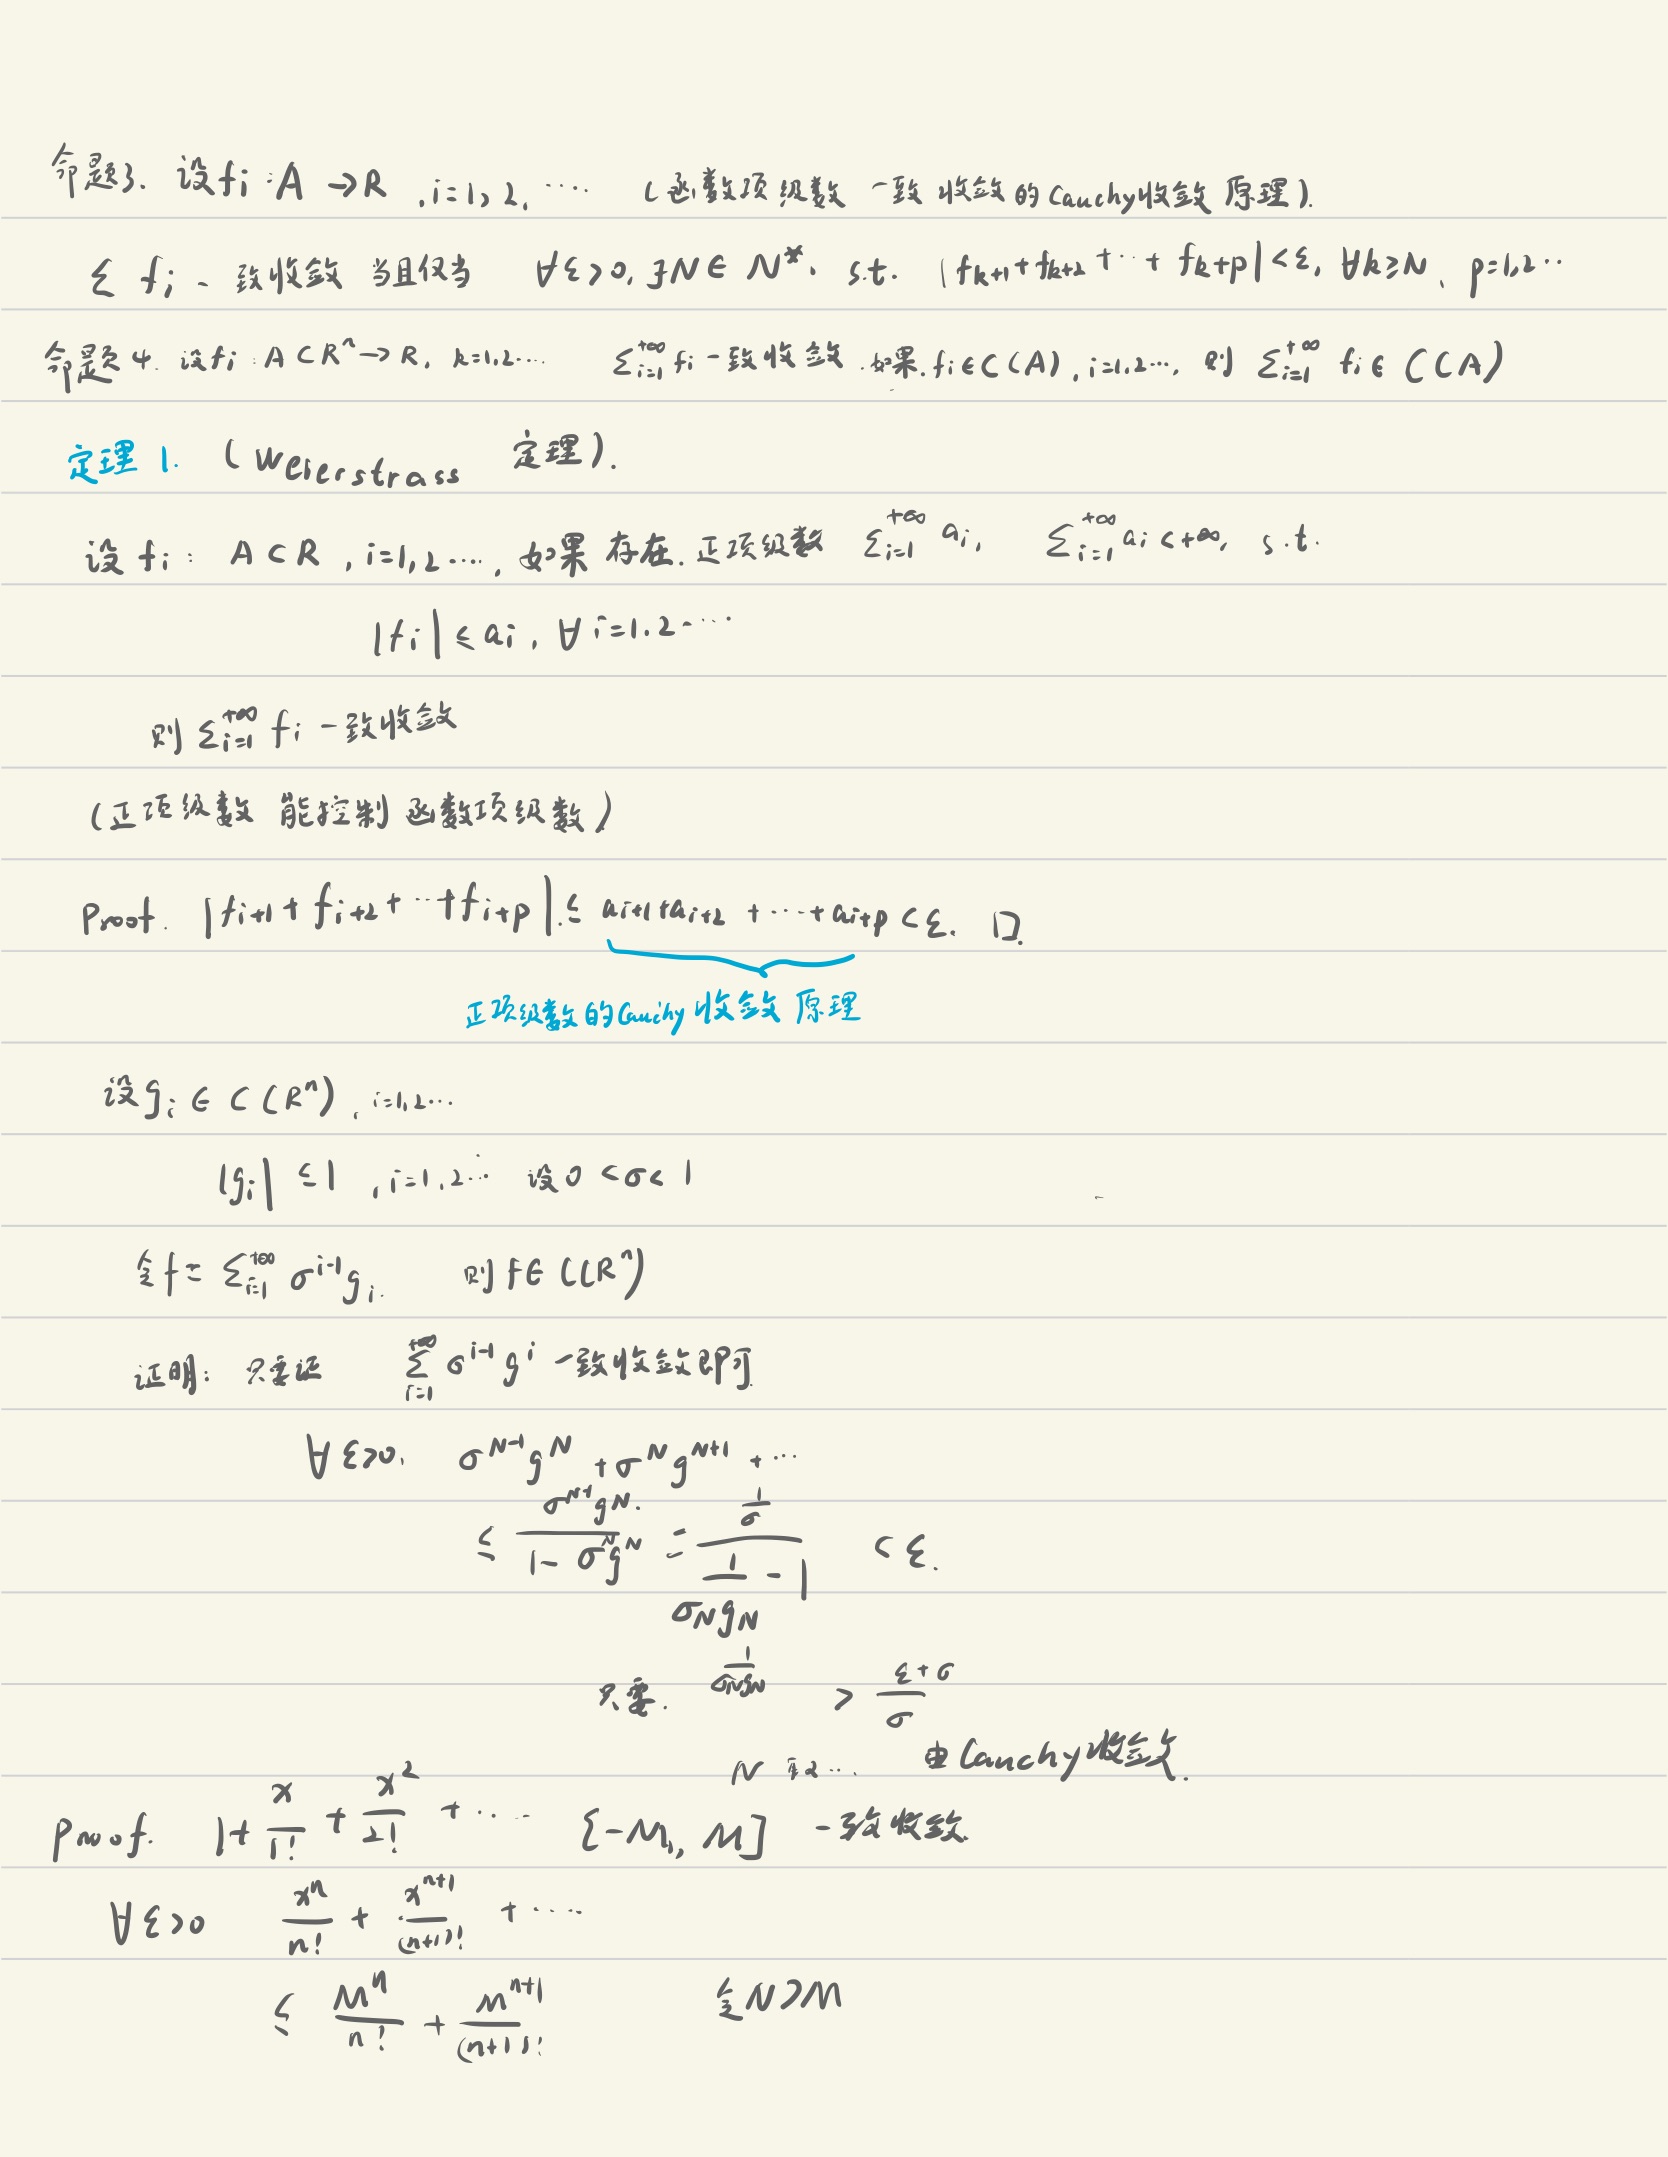 命题3. 设fi:A→R ,i=1,2,···· (函数项级数一致收敛的Cauchy收敛原理).
Σ fi 一致收敛 当且仅当 ∀ε>0,∃N∈N*, s.t. |f_{k+1}+f_{k+2}+···+f_{k+p}|<ε, ∀k≥N, p=1,2··
命题4. 设fi:A⊂Rⁿ→R, k=1,2···· Σ_{i=1}^{+∞} fi 一致收敛.如果.fi∈C(A),i=1,2···, 则 Σ_{i=1}^{+∞} fi∈C(A)
定理1. (Weierstrass 定理).
设fi: A⊂R ,i=1,2····,如果存在.正项级数 Σ_{i=1}^{+∞} ai, Σ_{i=1}^{+∞} ai<+∞, s.t.
|fi|≤ai, ∀i=1,2·····
则 Σ_{i=1}^{+∞} fi 一致收敛
(正项级数 能控制 函数项级数)
Proof. |f_{i+1}+f_{i+2}+···+f_{i+p}|≤ a_{i+1}+a_{i+2}+····+a_{i+p}<ε. □.
正项级数的Cauchy收敛原理
设gi∈C(Rⁿ),i=1,2···
|gi|≤1 ,i=1,2··· 设0<σ<1
令f= Σ_{i=1}^{+∞} σ^{i-1}g_i. 则f∈C(Rⁿ)
证明: 只要证 Σ_{i=1}^{+∞} σ^{i-1}g^i 一致收敛即可
∀ε>0, σ^{N-1}g^N+σ^N g^{N+1}+···
≤ \frac{σ^{N-1}g^N}{1-σ^N g^N} = \frac{\frac{1}{σ}}{\frac{1}{σ_N g_N}-1} <ε.
只要. \frac{1}{σ_N g_N} > \frac{ε+σ}{σ}
N 取··· 由Cauchy收敛.
Proof. 1+\frac{x}{1!}+\frac{x^2}{2!}+····· [-M, M] 一致收敛.
∀ε>0 \frac{x^n}{n!}+\frac{x^{n+1}}{(n+1)!}+·····
≤ \frac{M^n}{n!}+\frac{M^{n+1}}{(n+1)!} 令N>M